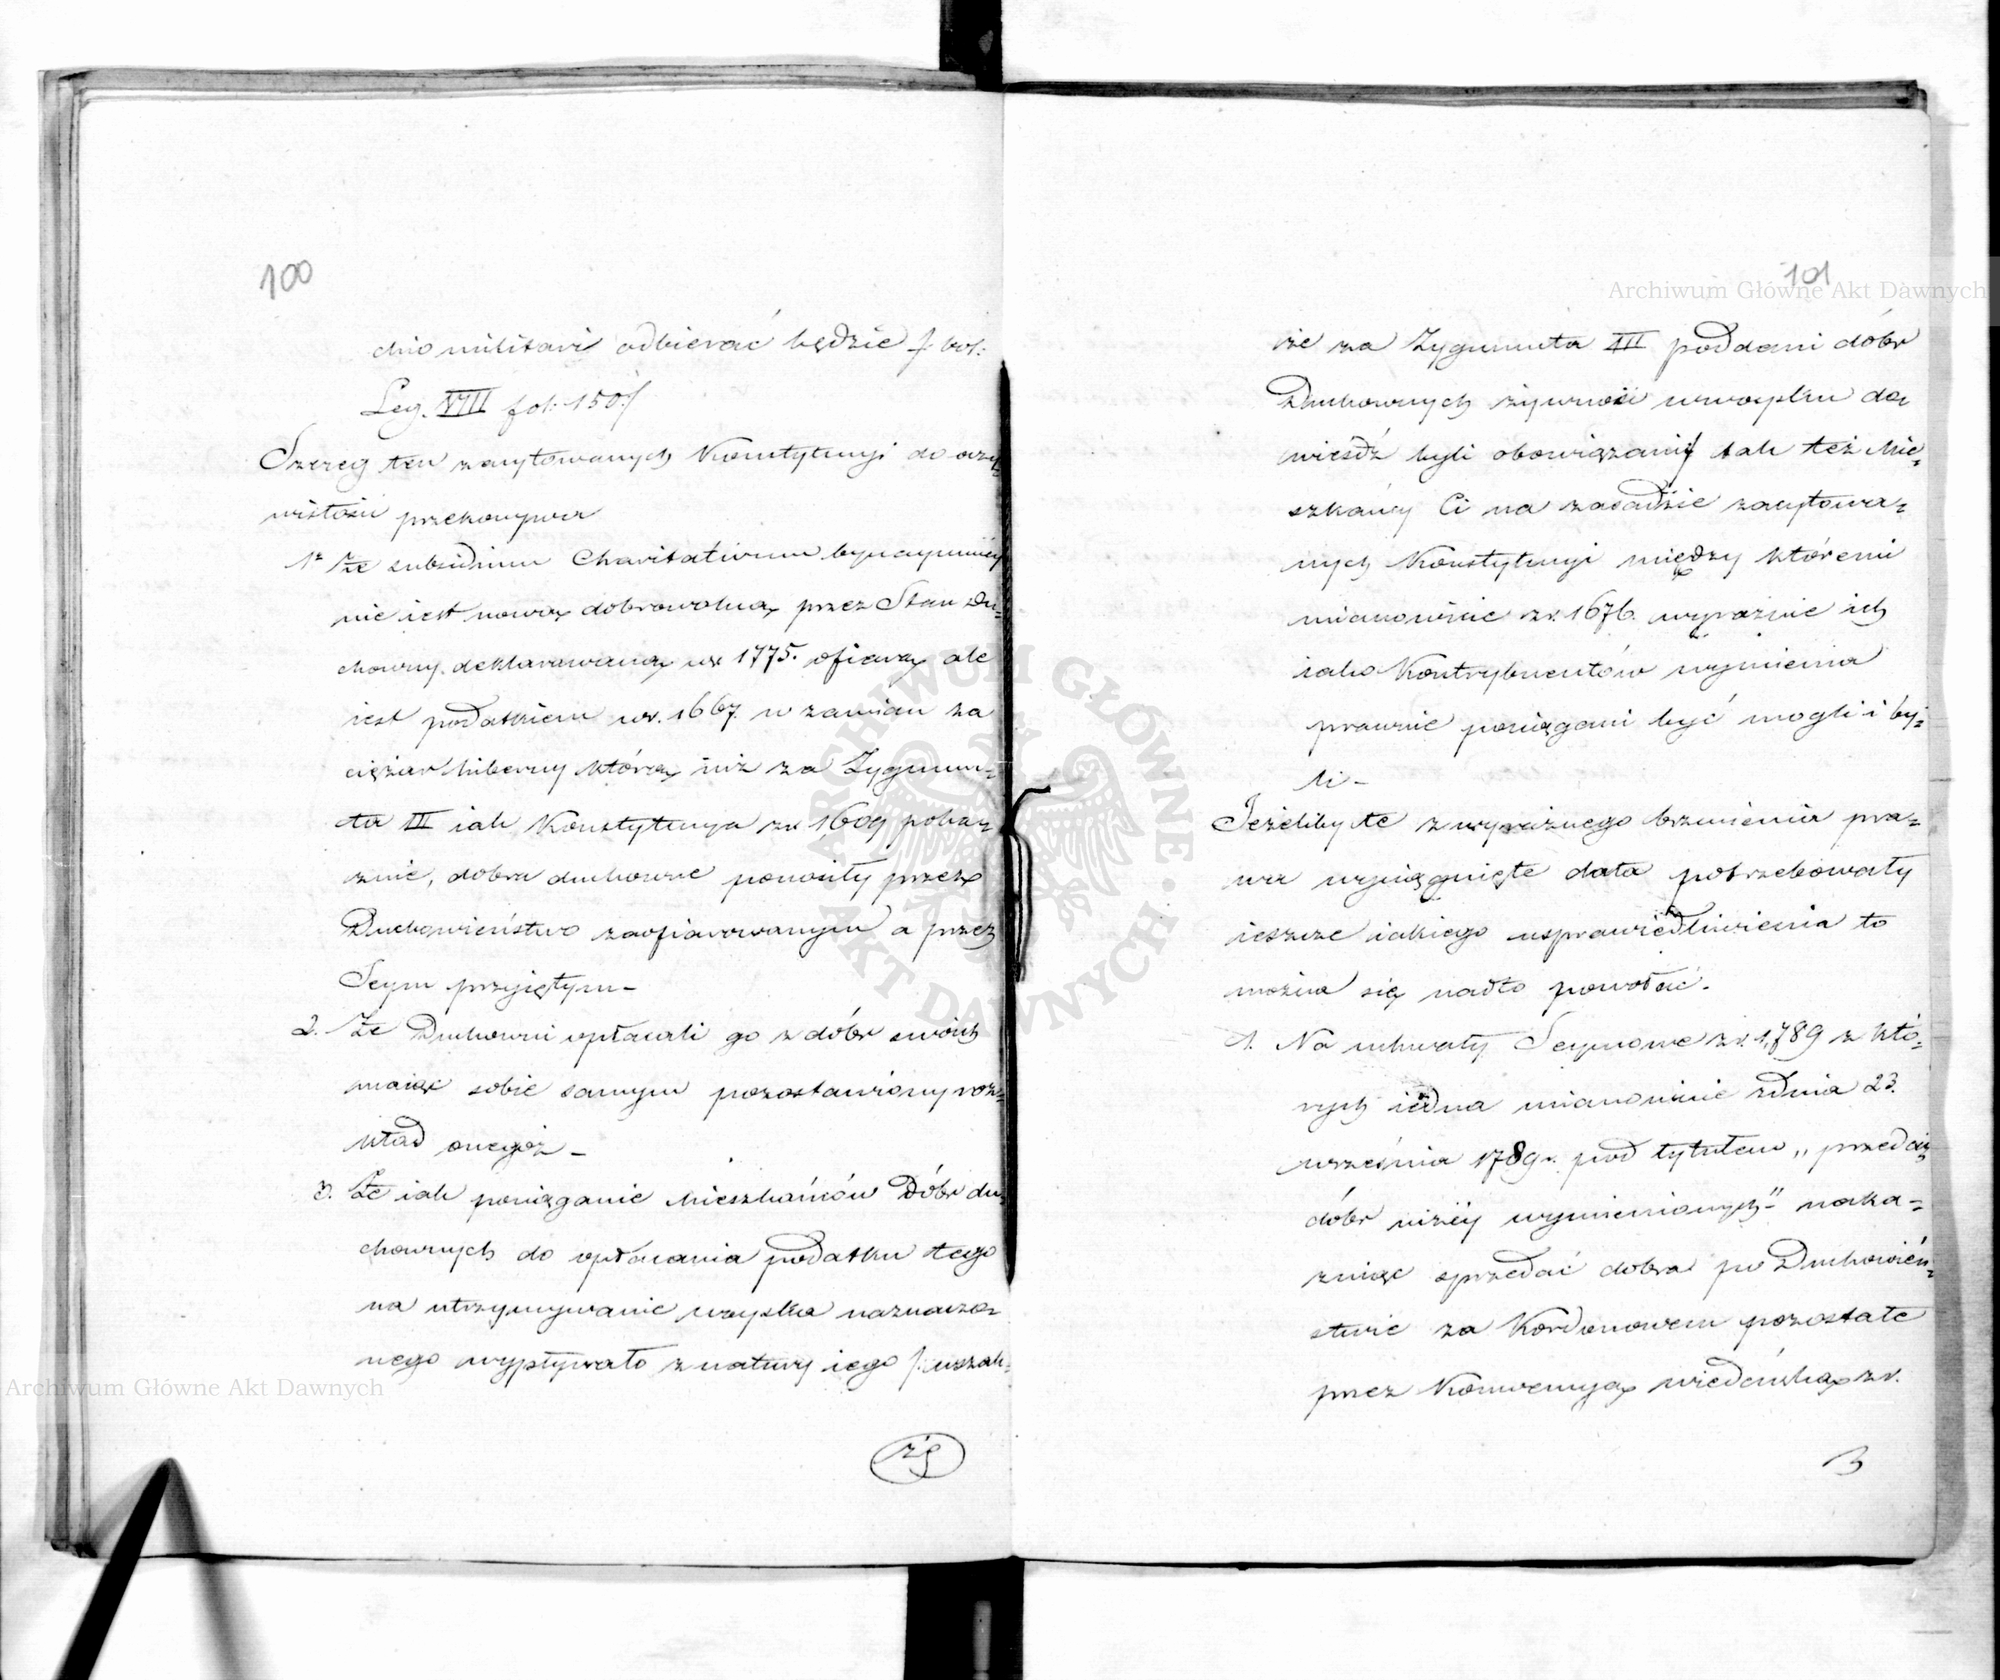 100
chio militari odbierać będzie /: vol:
Leg. VIII fol: 150 :/
Szereg ten zacytowanych Konstytucyi do oczy=
wistości przekonywa
1º Że subsidium Charitativum bynaymniey
nie iest nową dobrowolną przez Stan Du=
chowny deklarowaną w r. 1775. ofiarą ale
iest podatkiem w r. 1667. w zamian za
ciężar hiberny którą iuż za Zygmun=
ta III iak Konstytucya z r. 1609 poka=
znie, dobra duchowne ponosiły przez
Duchowieństwo zaofiarowanym a przez
Seym przyiętym –
2. Że Duchowni opłacali go z dóbr swoich
maiąc sobie samym pozostawiony roz=
kład onegoż –
3. Że iak pociąganie Mieszkańców Dóbr du=
chownych do opłacania podatku tego
na utrzymywanie woyska naznaczo=
nego wypływało z natury iego /: wszak=
że
101
że za Zygmunta III poddani dóbr
Duchownych żywność woysku do=
wieśdź byli obowiązani :/ tak też Mie=
szkańcy Ci na zasadzie zacytowa=
nych Konstytucyi między któremi
mianowicie z r. 1676. wyraźnie ich
iako Kontrybuentów wymienia
prawnie pociągani być mogli i by=
li –
Jeżeliby te z wyraźnego brzmienia pra=
wa wyciągnięte data potrzebowały
ieszcze iakiego usprawiedliwienia to
można się nadto powołać.
1. Na uchwały Seymowe z r. 1789 z któ=
rych iedna mianowicie z dnia 23.
września 1789 r. pod tytułem „przedaż
dóbr niżéy wymienionych" naka=
zuiąc sprzedać dobra po Duchowień=
stwie za Kordonowem pozostałe
przez Konwencyą wiedeńską z r.
Archiwum Główne Akt Dawnych
Archiwum Główne Akt Dawnych
ARCHIWUM GŁÓWNE AKT DAWNYCH